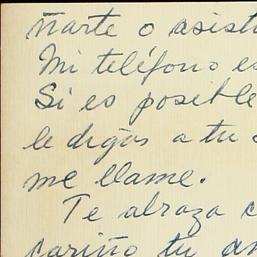 ñarte o asist
Mi teléfono es
Si es posible
le digas a tu
me llame.
Te abraza c
cariño tu am